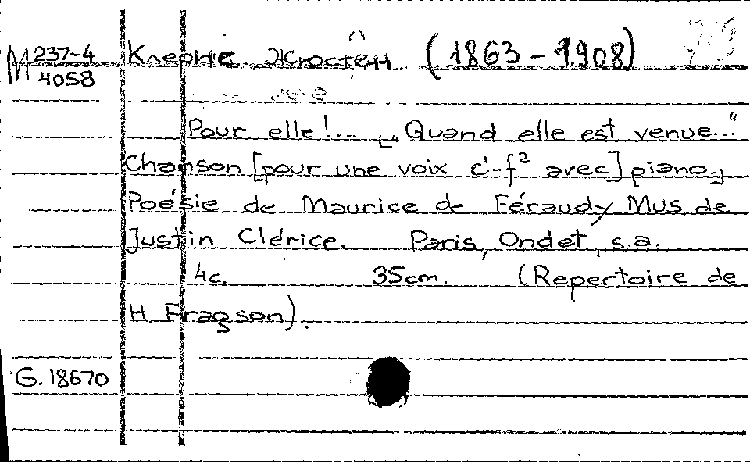 М 237-4 Клерис Жюстен (1863-1908)
4058
Pour elle!... „Quand elle est venue..."
Chanson [pour une voix c'-f² avec] piano,
Poésie de Maurice de Féraudy Mus de
Justin Clérice. Paris, Ondet, s.a.
4c. 35cm. (Repertoire de
H Fragson).
G. 18670